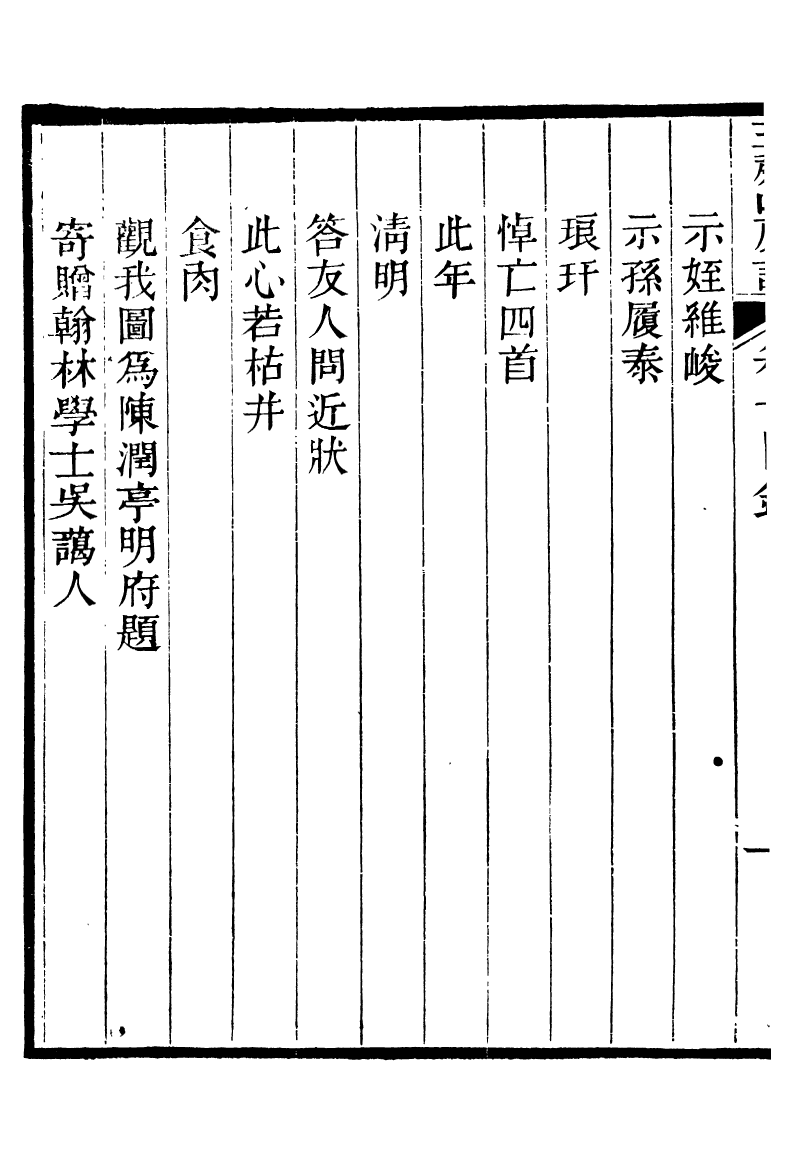 示姪維峻
示孫履泰
琅玕
悼亡四首
此年
淸明
答友人問近狀
此心若枯井
食肉
觀我圖爲陳潤亭明府題
寄贈翰林學士吳藹人